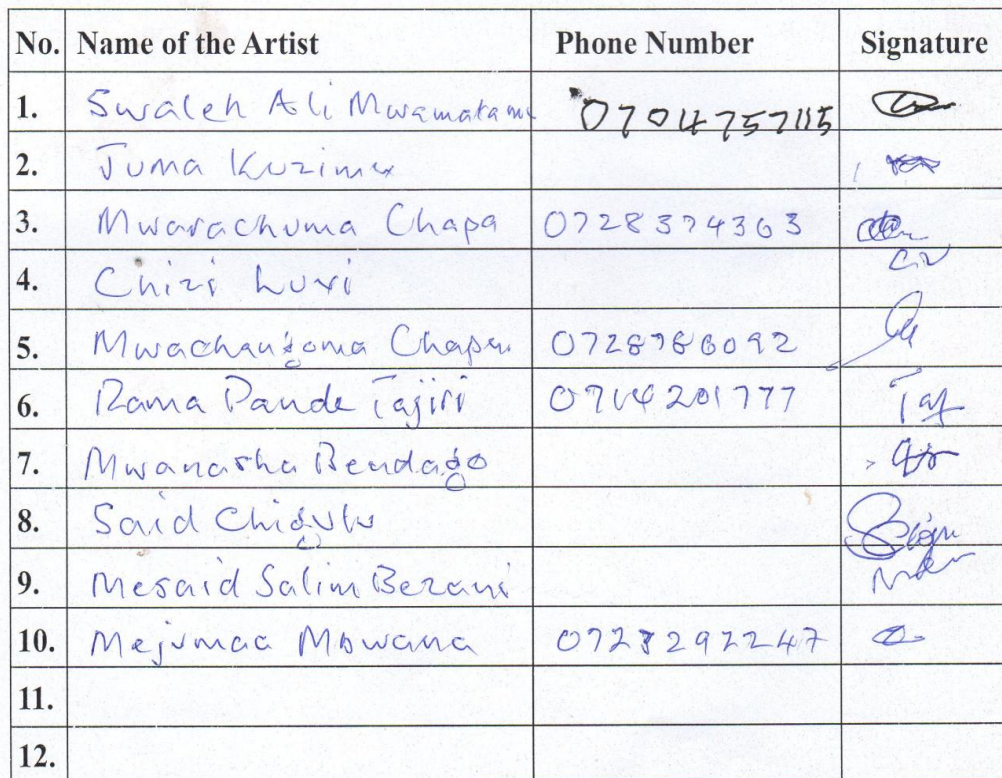 No. Name of the Artist Phone Number Signature
1. Swaleh Ali Mwamatami 0704757115
2. Juma Kuzima
3. Mwarachuma Chapa 0728374363
4. Chizi Luvi
5. Mwachangoma Chapa 0728786092
6. Rama Pande Tajiri 0714201777 Taj
7. Mwanasha Bendago
8. Said Chigulu
9. Mesaid Salim Bezani
10. Mejumaa Mbwana 0728292247
11.
12.